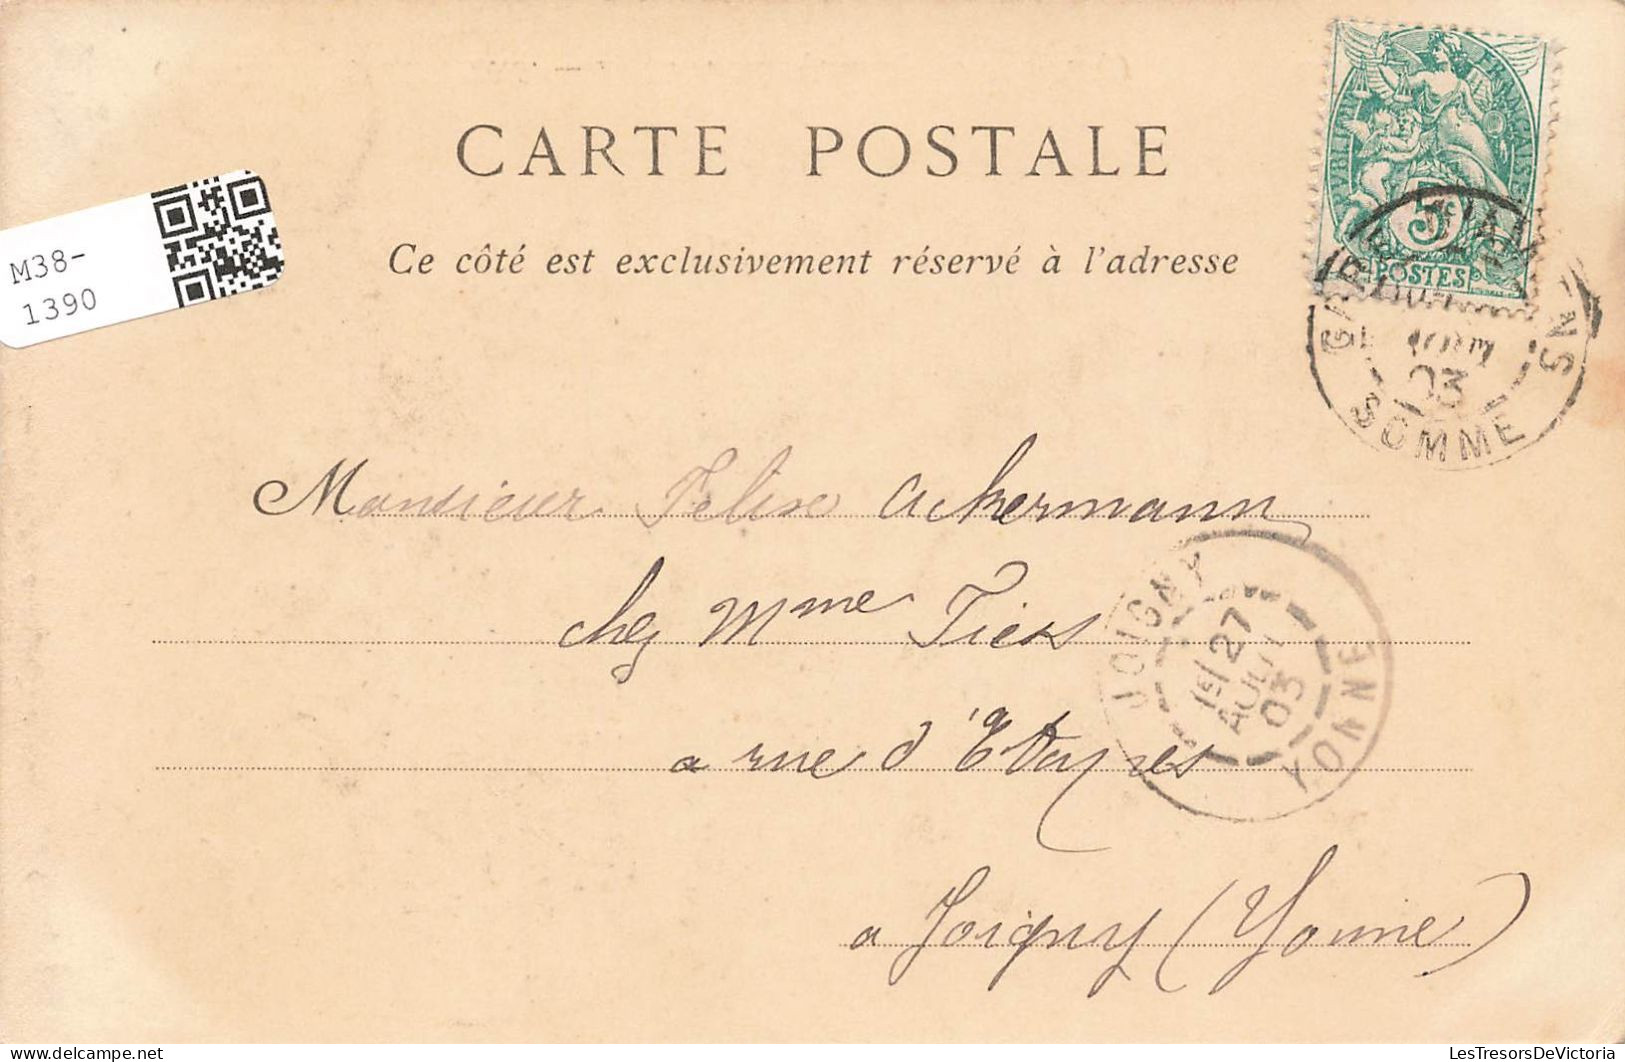 CARTE POSTALE
Ce côté est exclusivement réservé à l'adresse
M38-
1390
RÉPUBLIQUE FRANÇAISE
5c
POSTES
GARE D'AMIENS
03
SOMME
Monsieur Felix Ackermann
chez Mme Fiers
a rue d'Etapes
a Joigny (Yonne)
JOIGNY
27
AOUT
03
YONNE
LesTresorsDeVictoria